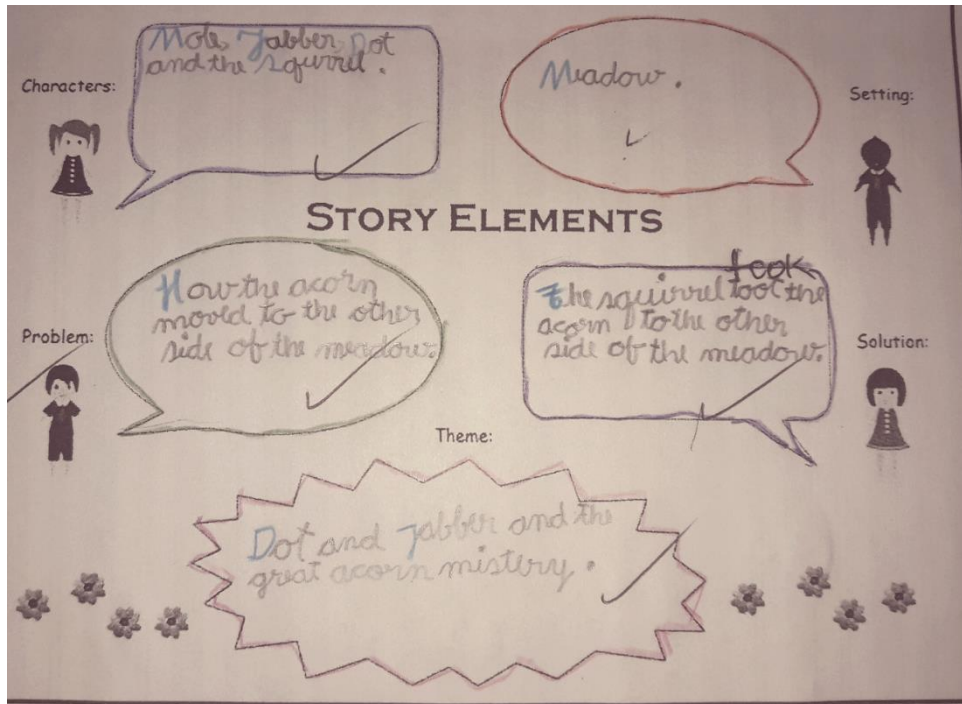 Characters:
Mole, Jabber, Dot
and the squirrel.
Meadow.
Setting:
STORY ELEMENTS
Problem:
How the acorn
moved to the other
side of the meadow.
took
The squirrel tool the
acorn to the other
side of the meadow.
Solution:
Theme:
Dot and Jabber and the
great acorn mistery.